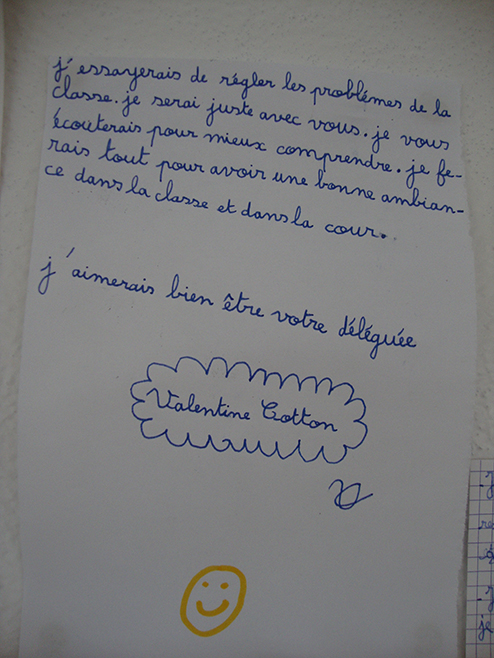 j'essayerais de régler les problèmes de la
classe. je serai juste avec vous. je vous
écouterais pour mieux comprendre. je fe-
rais tout pour avoir une bonne ambian-
ce dans la classe et dans la cour.
j'aimerais bien être votre déléguée
Valentine Cotton